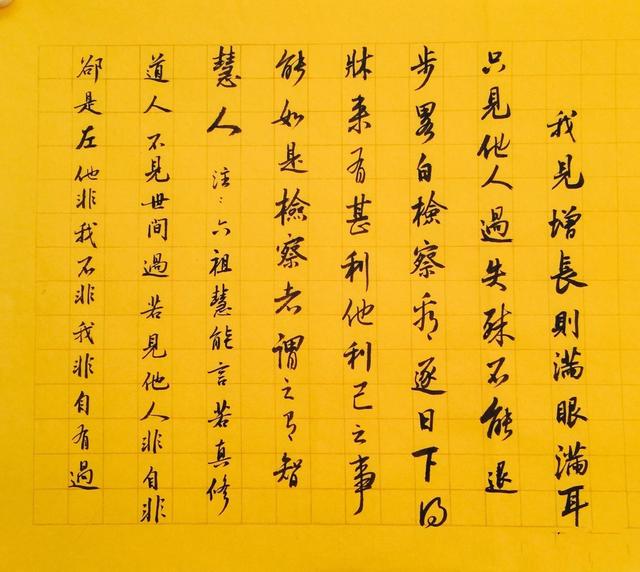 我見增長則滿眼滿耳
只見他人過失殊不能退
步畧自檢察看逐日下得
牀來有甚利他利己之事
能如是檢察者謂之有智
慧人 注:六祖慧能言若真修
道人不見世間過若見他人非自非
卻是左他非我不非我非自有過